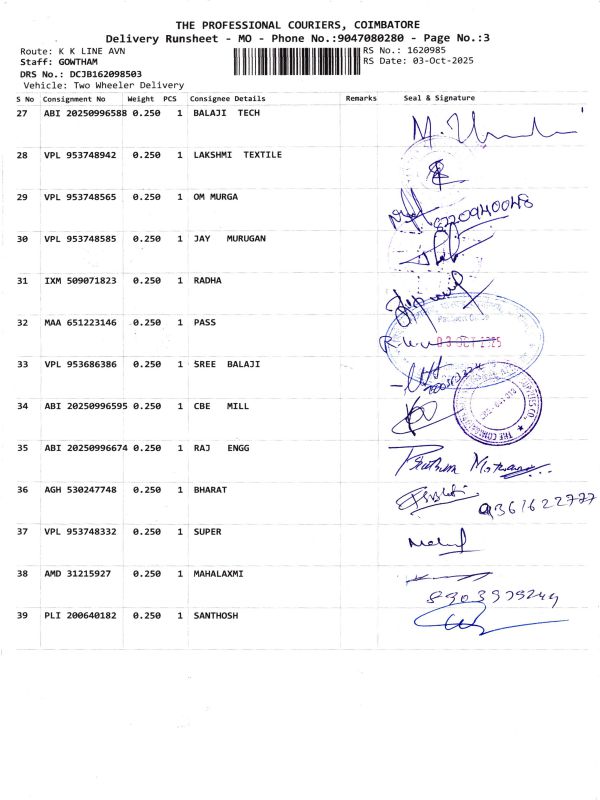 THE PROFESSIONAL COURIERS, COIMBATORE
Delivery Runsheet - MO - Phone No.:9047080280 - Page No.:3
Route: K K LINE AVN RS No.: 1620985
Staff: GOWTHAM RS Date: 03-Oct-2025
DRS No.: DCJB162098503
Vehicle: Two Wheeler Delivery
S No Consignment No Weight PCS Consignee Details Remarks Seal & Signature
27 ABI 20250996588 0.250 1 BALAJI TECH
28 VPL 953748942 0.250 1 LAKSHMI TEXTILE
29 VPL 953748565 0.250 1 OM MURGA
30 VPL 953748585 0.250 1 JAY MURUGAN
31 IXM 509071823 0.250 1 RADHA
32 MAA 651223146 0.250 1 PASS
03 OCT 2025
33 VPL 953686386 0.250 1 SREE BALAJI
34 ABI 20250996595 0.250 1 CBE MILL
35 ABI 20250996674 0.250 1 RAJ ENGG
36 AGH 530247748 0.250 1 BHARAT
9361622777
37 VPL 953748332 0.250 1 SUPER
38 AMD 31215927 0.250 1 MAHALAXMI
8903979249
39 PLI 200640182 0.250 1 SANTHOSH